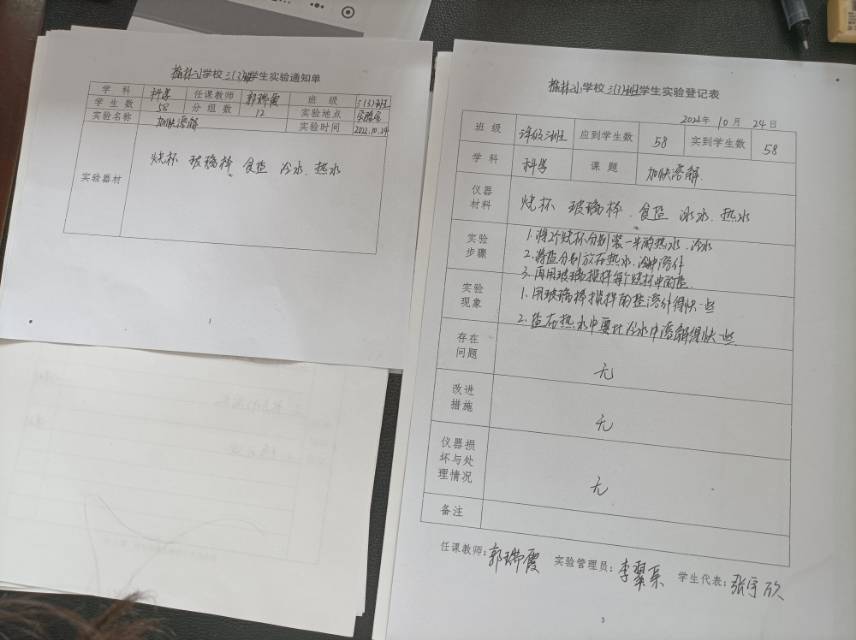 榆林小学校三(3)班学生实验通知单
学科 科学 任课教师 郭瑞霞 班级 三(3)班
学生数 58 分组数 12 实验地点 实验室
实验名称 加快溶解 实验时间 2022.10.24
实验器材 烧杯 玻璃棒 食盐 冷水 热水
1
榆林小学校三(3)班学生实验登记表
2022年10月24日
班级 三年级3班 应到学生数 58 实到学生数 58
学科 科学 课题 加快溶解
仪器材料 烧杯 玻璃棒 食盐 冰水 热水
实验步骤 1.将2个烧杯分别装一半的热水、冷水
2.将盐分别放在热水、冷水中溶化
3.再用玻璃棒搅拌每个烧杯中的盐
实验现象 1.用玻璃棒搅拌的盐溶化得快一些
2.盐在热水中要比冷水中溶解得快一些
存在问题 无
改进措施 无
仪器损坏与处理情况 无
备注
任课教师:郭瑞霞 实验管理员:李翠东 学生代表:张宇欣
3